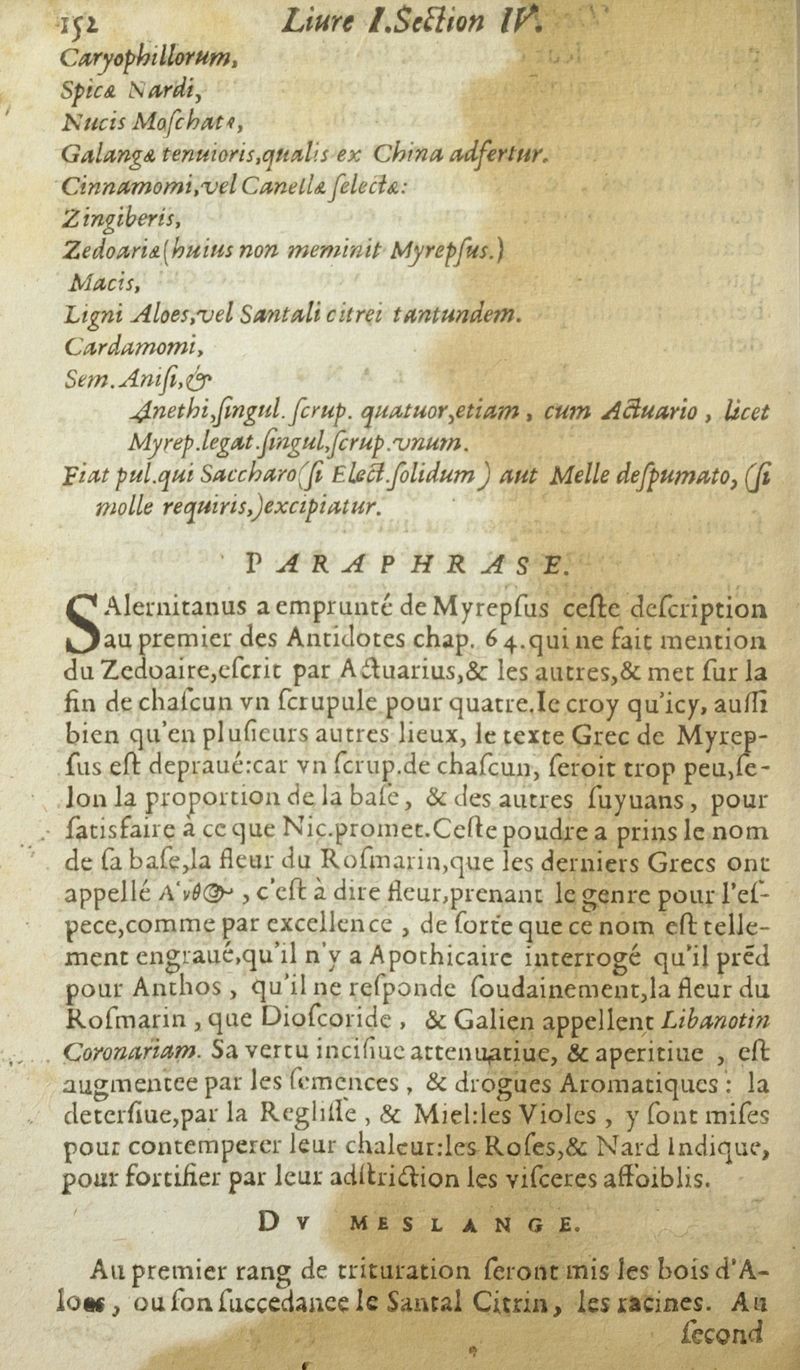 152 Liure I.Section IV.
Caryophillorum,
Spicæ Nardi,
Nucis Moſchatæ,
Galangæ tenuioris,qualis ex China adfertur.
Cinnamomi,vel Canellæ ſelectæ:
Zingiberis,
Zedoariæ(huius non meminit Myrepſus.)
Macis,
Ligni Aloes,vel Santali citrei tantundem.
Cardamomi,
Sem. Aniſi,&
Anethi,ſingul. ſcrup. quatuor,etiam, cum Actuario, licet
Myrep.legat.ſingul,ſcrup.vnum.
Fiat pul.qui Saccharo(ſi Elect.ſolidum) aut Melle deſpumato, (ſi
molle requiris,)excipiatur.
PARAPHRASE.
SAlernitanus a emprunté de Myrepſus ceſte deſcription
au premier des Antidotes chap. 64.qui ne fait mention
du Zedoaire,eſcrit par Actuarius,& les autres,& met ſur la
fin de chaſcun vn ſcrupule pour quatre.Ie croy qu'icy, auſſi
bien qu'en pluſieurs autres lieux, le texte Grec de Myrep-
ſus eſt depraué:car vn ſcrup.de chaſcun, ſeroit trop peu,ſe-
lon la proportion de la baſe, & des autres ſuyuans, pour
ſatisfaire à ce que Nic.promet.Ceſte poudre a prins le nom
de ſa baſe,la fleur du Roſmarin,que les derniers Grecs ont
appellé Α'νθος, c'eſt à dire fleur,prenant le genre pour l'eſ-
pece,comme par excellence, de ſorte que ce nom eſt telle-
ment engraué,qu'il n'y a Apothicaire interrogé qu'il prẽd
pour Anthos, qu'il ne reſponde ſoudainement,la fleur du
Roſmarin, que Dioſcoride, & Galien appellent Libanotin
Coronariam. Sa vertu inciſiue attenuatiue, & aperitiue, eſt
augmentee par les ſemences, & drogues Aromatiques: la
deterſiue,par la Regliſſe, & Miel:les Violes, y ſont miſes
pour contemperer leur chaleur:les Roſes,& Nard Indique,
pour fortifier par leur adſtriction les viſceres affoiblis.
DV MESLANGE.
Au premier rang de trituration ſeront mis les bois d'A-
loes, ou ſon ſuccedanee le Santal Citrin, les racines. Au
ſecond